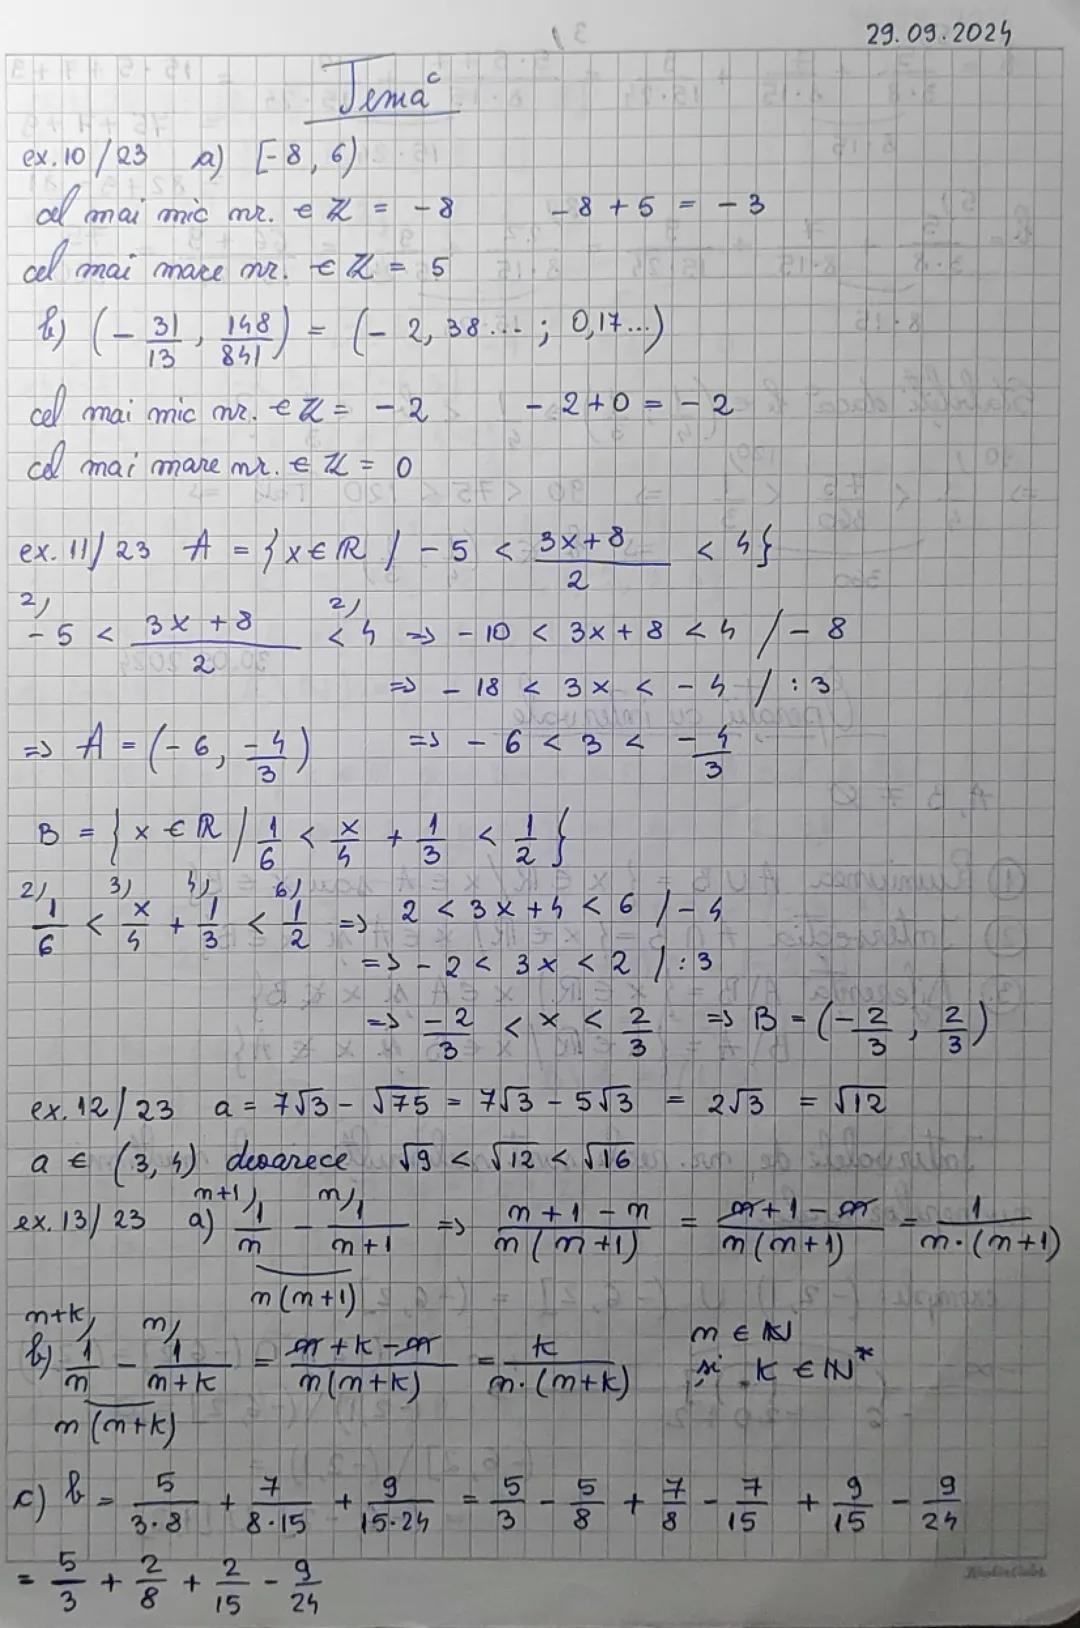 29.09.2024
Temă
ex.10/23 a) [-8, 6)
cel mai mic nr. ∈ ℤ = -8 -8+5 = -3
cel mai mare nr. ∈ ℤ = 5
b) (-31/13, 148/841) = (-2,38...; 0,17...)
cel mai mic nr. ∈ ℤ = -2 -2+0 = -2
cel mai mare nr. ∈ ℤ = 0
ex.11/23 A = {x ∈ ℝ / -5 < (3x+8)/2 < 4}
2) -5 < (3x+8)/2 < 2) 4 => -10 < 3x+8 < 4 / -8
=> -18 < 3x < -4 / :3
=> A = (-6, -4/3) => -6 < 3 < -4/3
B = {x ∈ ℝ / 1/6 < x/4 + 1/3 < 1/2}
2) 1/6 < 3) x/4 + 4) 1/3 < 6) 1/2 => 2 < 3x+4 < 6 / -4
=> -2 < 3x < 2 / :3
=> -2/3 < x < 2/3 => B = (-2/3, 2/3)
ex.12/23 a = 7√3 - √75 = 7√3 - 5√3 = 2√3 = √12
a ∈ (3,4) deoarece √9 < √12 < √16
ex.13/23 a) n+1) 1/n - n) 1/(n+1) => (n+1-n)/(n(n+1)) = (n+1-n)/(n(n+1)) = 1/(n·(n+1))
n(n+1)
b) n+k) 1/n - n) 1/(n+k) = (n+k-n)/(n(n+k)) = k/(n·(n+k)) n ∈ ℕ și k ∈ ℕ*
n(n+k)
c) b = 5/(3·8) + 7/(8·15) + 9/(15·24) = 5/3 - 5/8 + 7/8 - 7/15 + 9/15 - 9/24
= 5/3 + 2/8 + 2/15 - 9/24